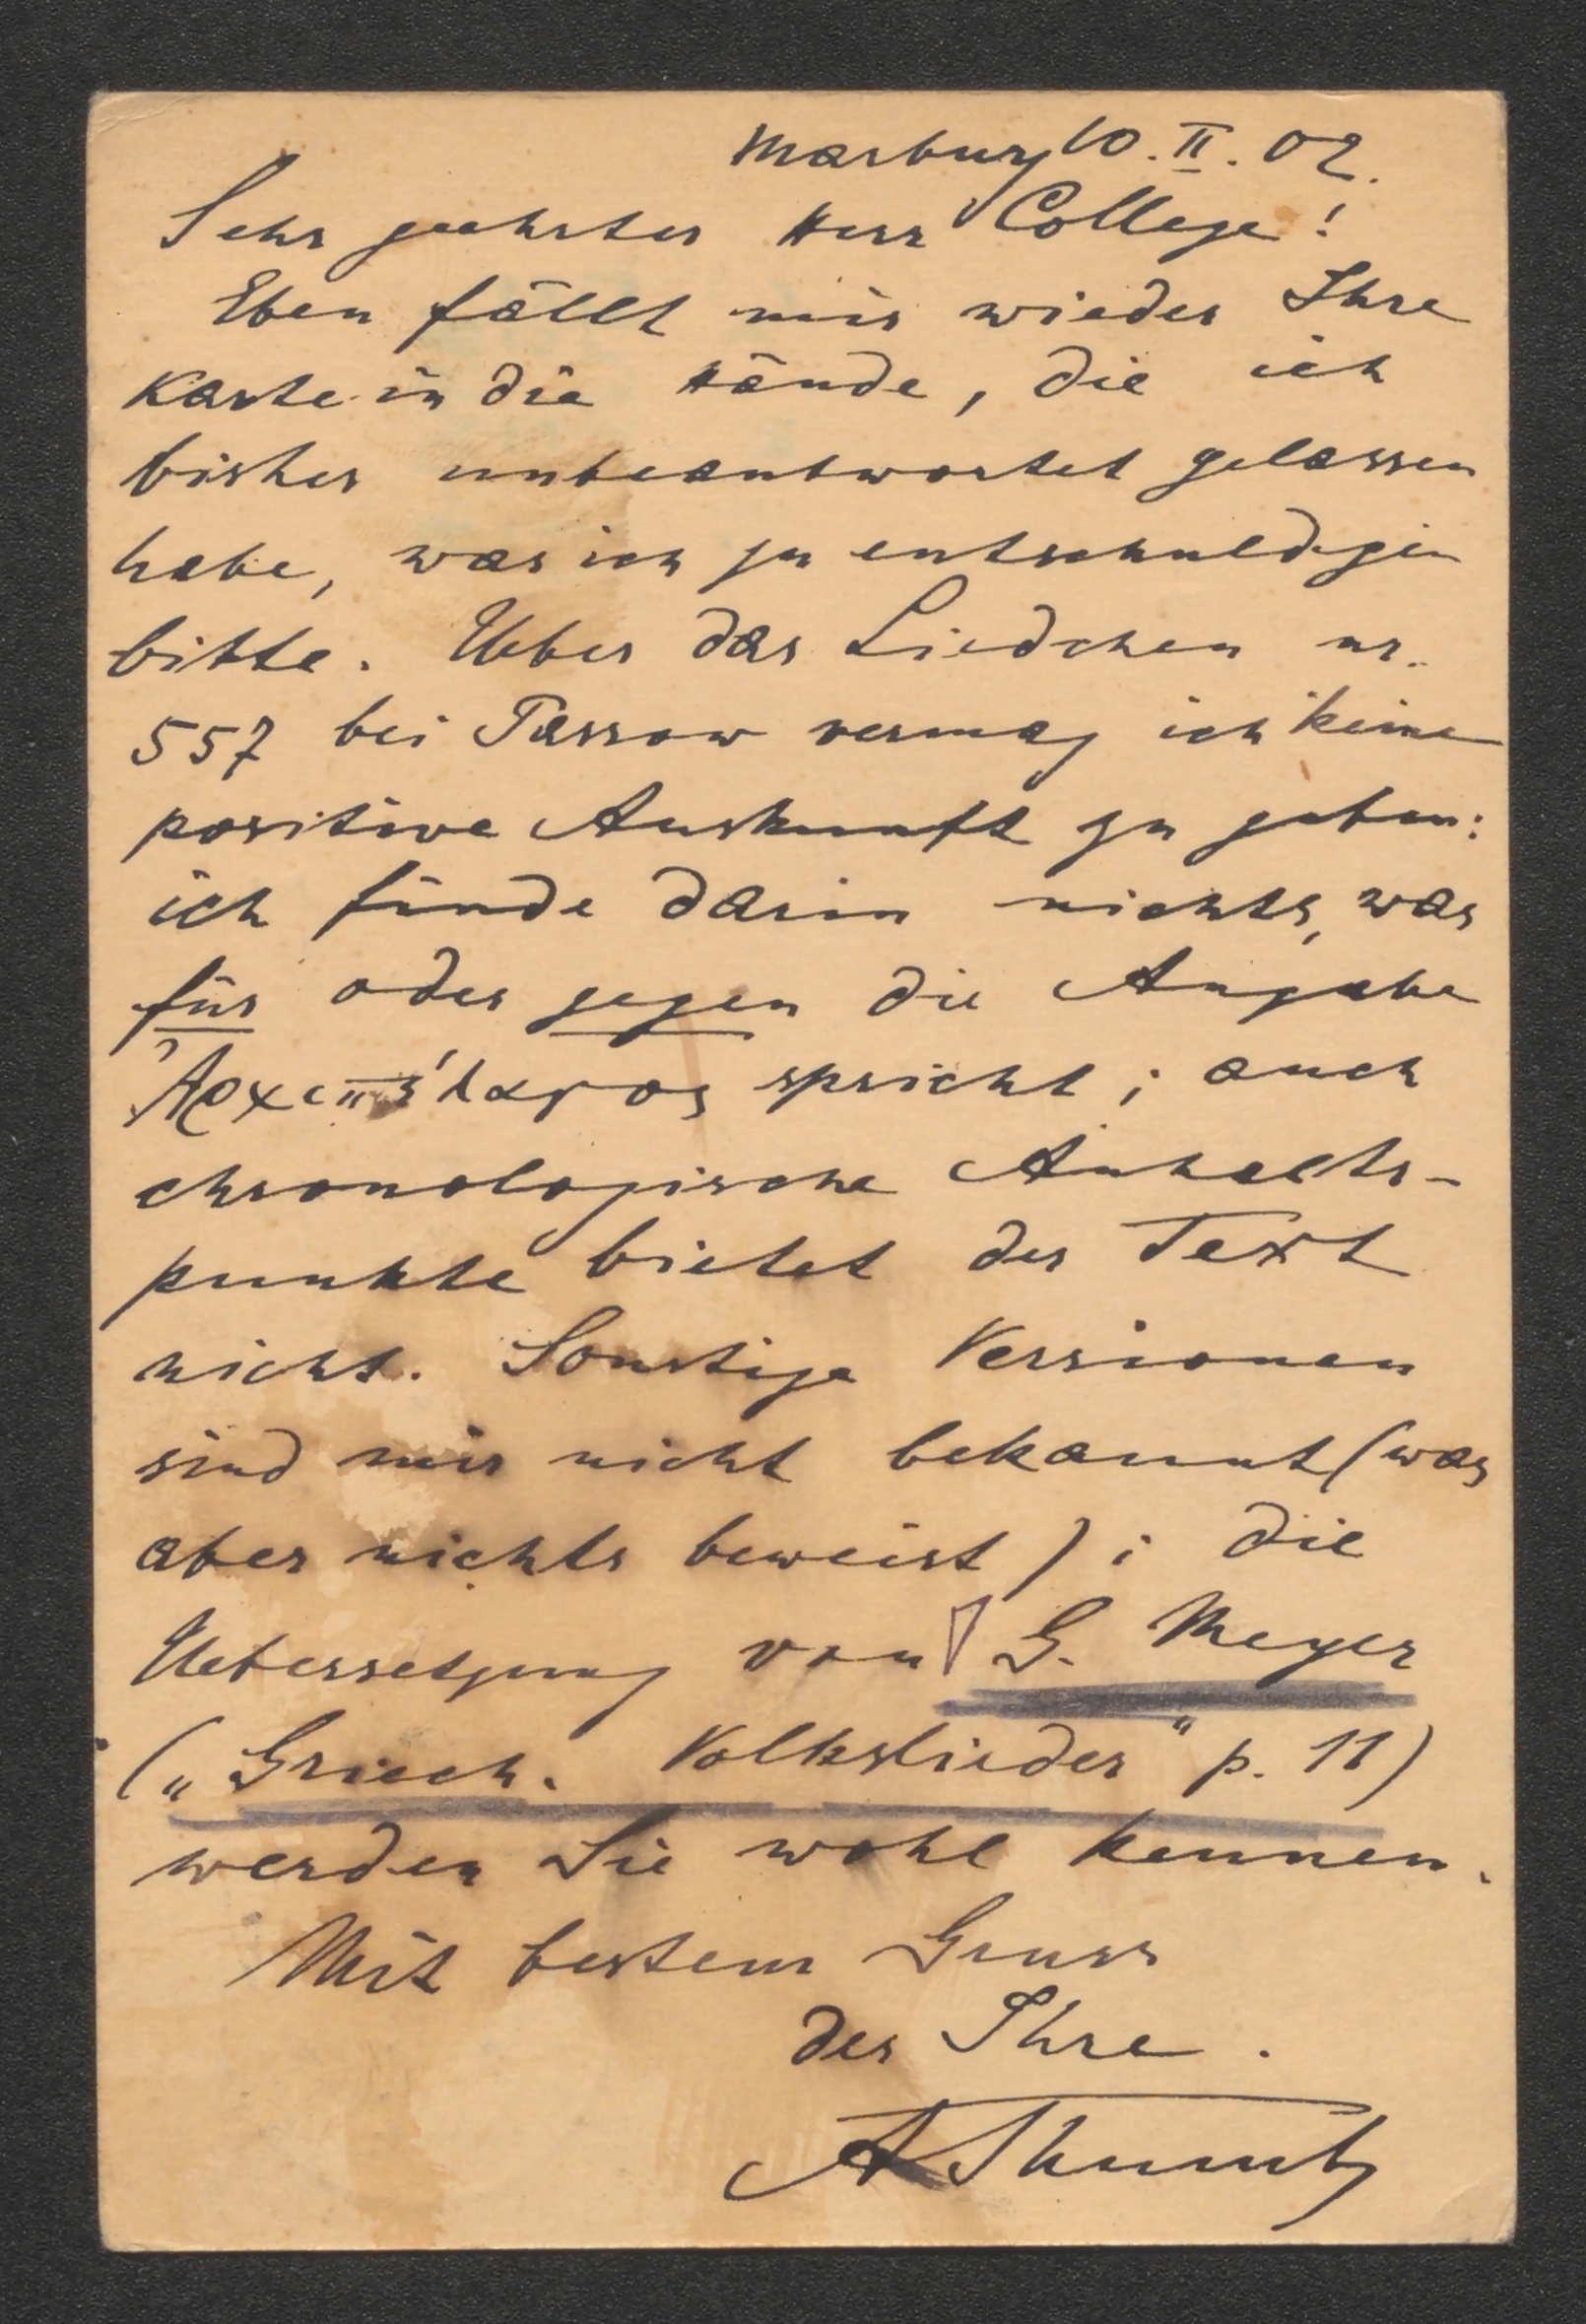 Marburg 10. II. 02.
Sehr geehrter Herr College!
Eben fällt mir wieder Ihre
Karte in die Hände, die ich
bisher unbeantwortet gelassen
habe, was ich zu entschuldigen
bitte. Ueber das Liedchen nr.
557 bei Passow vermag ich keine
positive Auskunft zu geben:
ich finde darin nichts, was
für oder gegen die Angabe
Ἀρχιπέλαγος spricht; auch
chronologische Anhalts-
punkte bietet der Text
nicht. Sonstige Versionen
sind mir nicht bekannt (was
aber nichts beweist); die
Uebersetzung von G. Meyer
(„Griech. Volkslieder“ p. 11)
werden Sie wohl kennen.
Mit bestem Gruss
der Ihre.
A Thumb